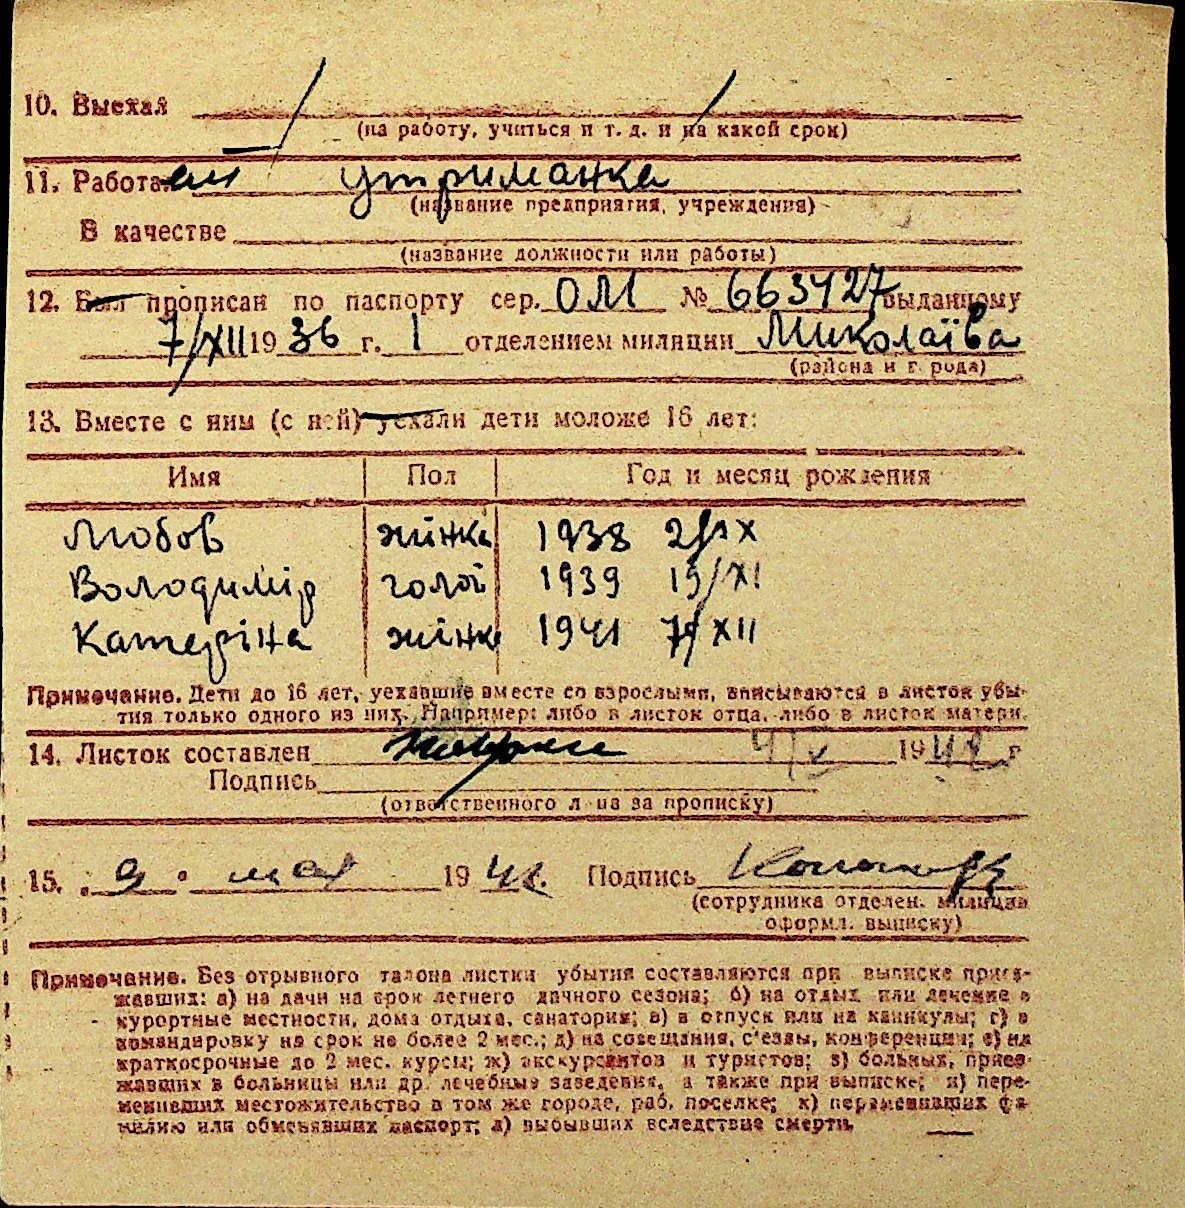 10. Выехал
(на работу, учиться и т. д. и на какой срок)
11. Работал утриманка
(название предприятия, учреждения)
В качестве
(название должности или работы)
12. Был прописан по паспорту сер. ОМ № 663427 выданному
7/XII 1936 г. 1 отделением милиции Миколаїва
(района и города)
13. Вместе с ним (с ней) уехали дети моложе 16 лет:
Имя Пол Год и месяц рождения
Любов жінка 1938 2/IX
Володимір голої 1939 19/XI
Катеріна жінк 1941 7/XII
Примечание. Дети до 16 лет, уехавшие вместе со взрослыми, вписываются в листок убы-
тия только одного из них. Например: либо в листок отца, либо в листок матери.
14. Листок составлен 4/V 1942 г
Подпись
(ответственного лица за прописку)
15. „9“ мая 194 Подпись
(сотрудника отделен. милиции
оформл. выписку)
Примечание. Без отрывного талона листки убытия составляются при выписке приез-
жавших: а) на дачи на срок летнего дачного сезона; б) на отдых или лечение в
курортные местности, дома отдыха, санатория; в) в отпуск или на каникулы; г) в
командировку на срок не более 2 мес.; д) на совещания, с'езды, конференции; е) на
краткосрочные до 2 мес. курсы; ж) экскурсантов и туристов; з) больных, приез-
жавших в больницы или др. лечебные заведения, а также при выписке; и) пере-
менивших местожительство в том же городе, раб. поселке; к) переменивших фа-
милию или обменявших паспорт; л) выбывших вследствие смерти.